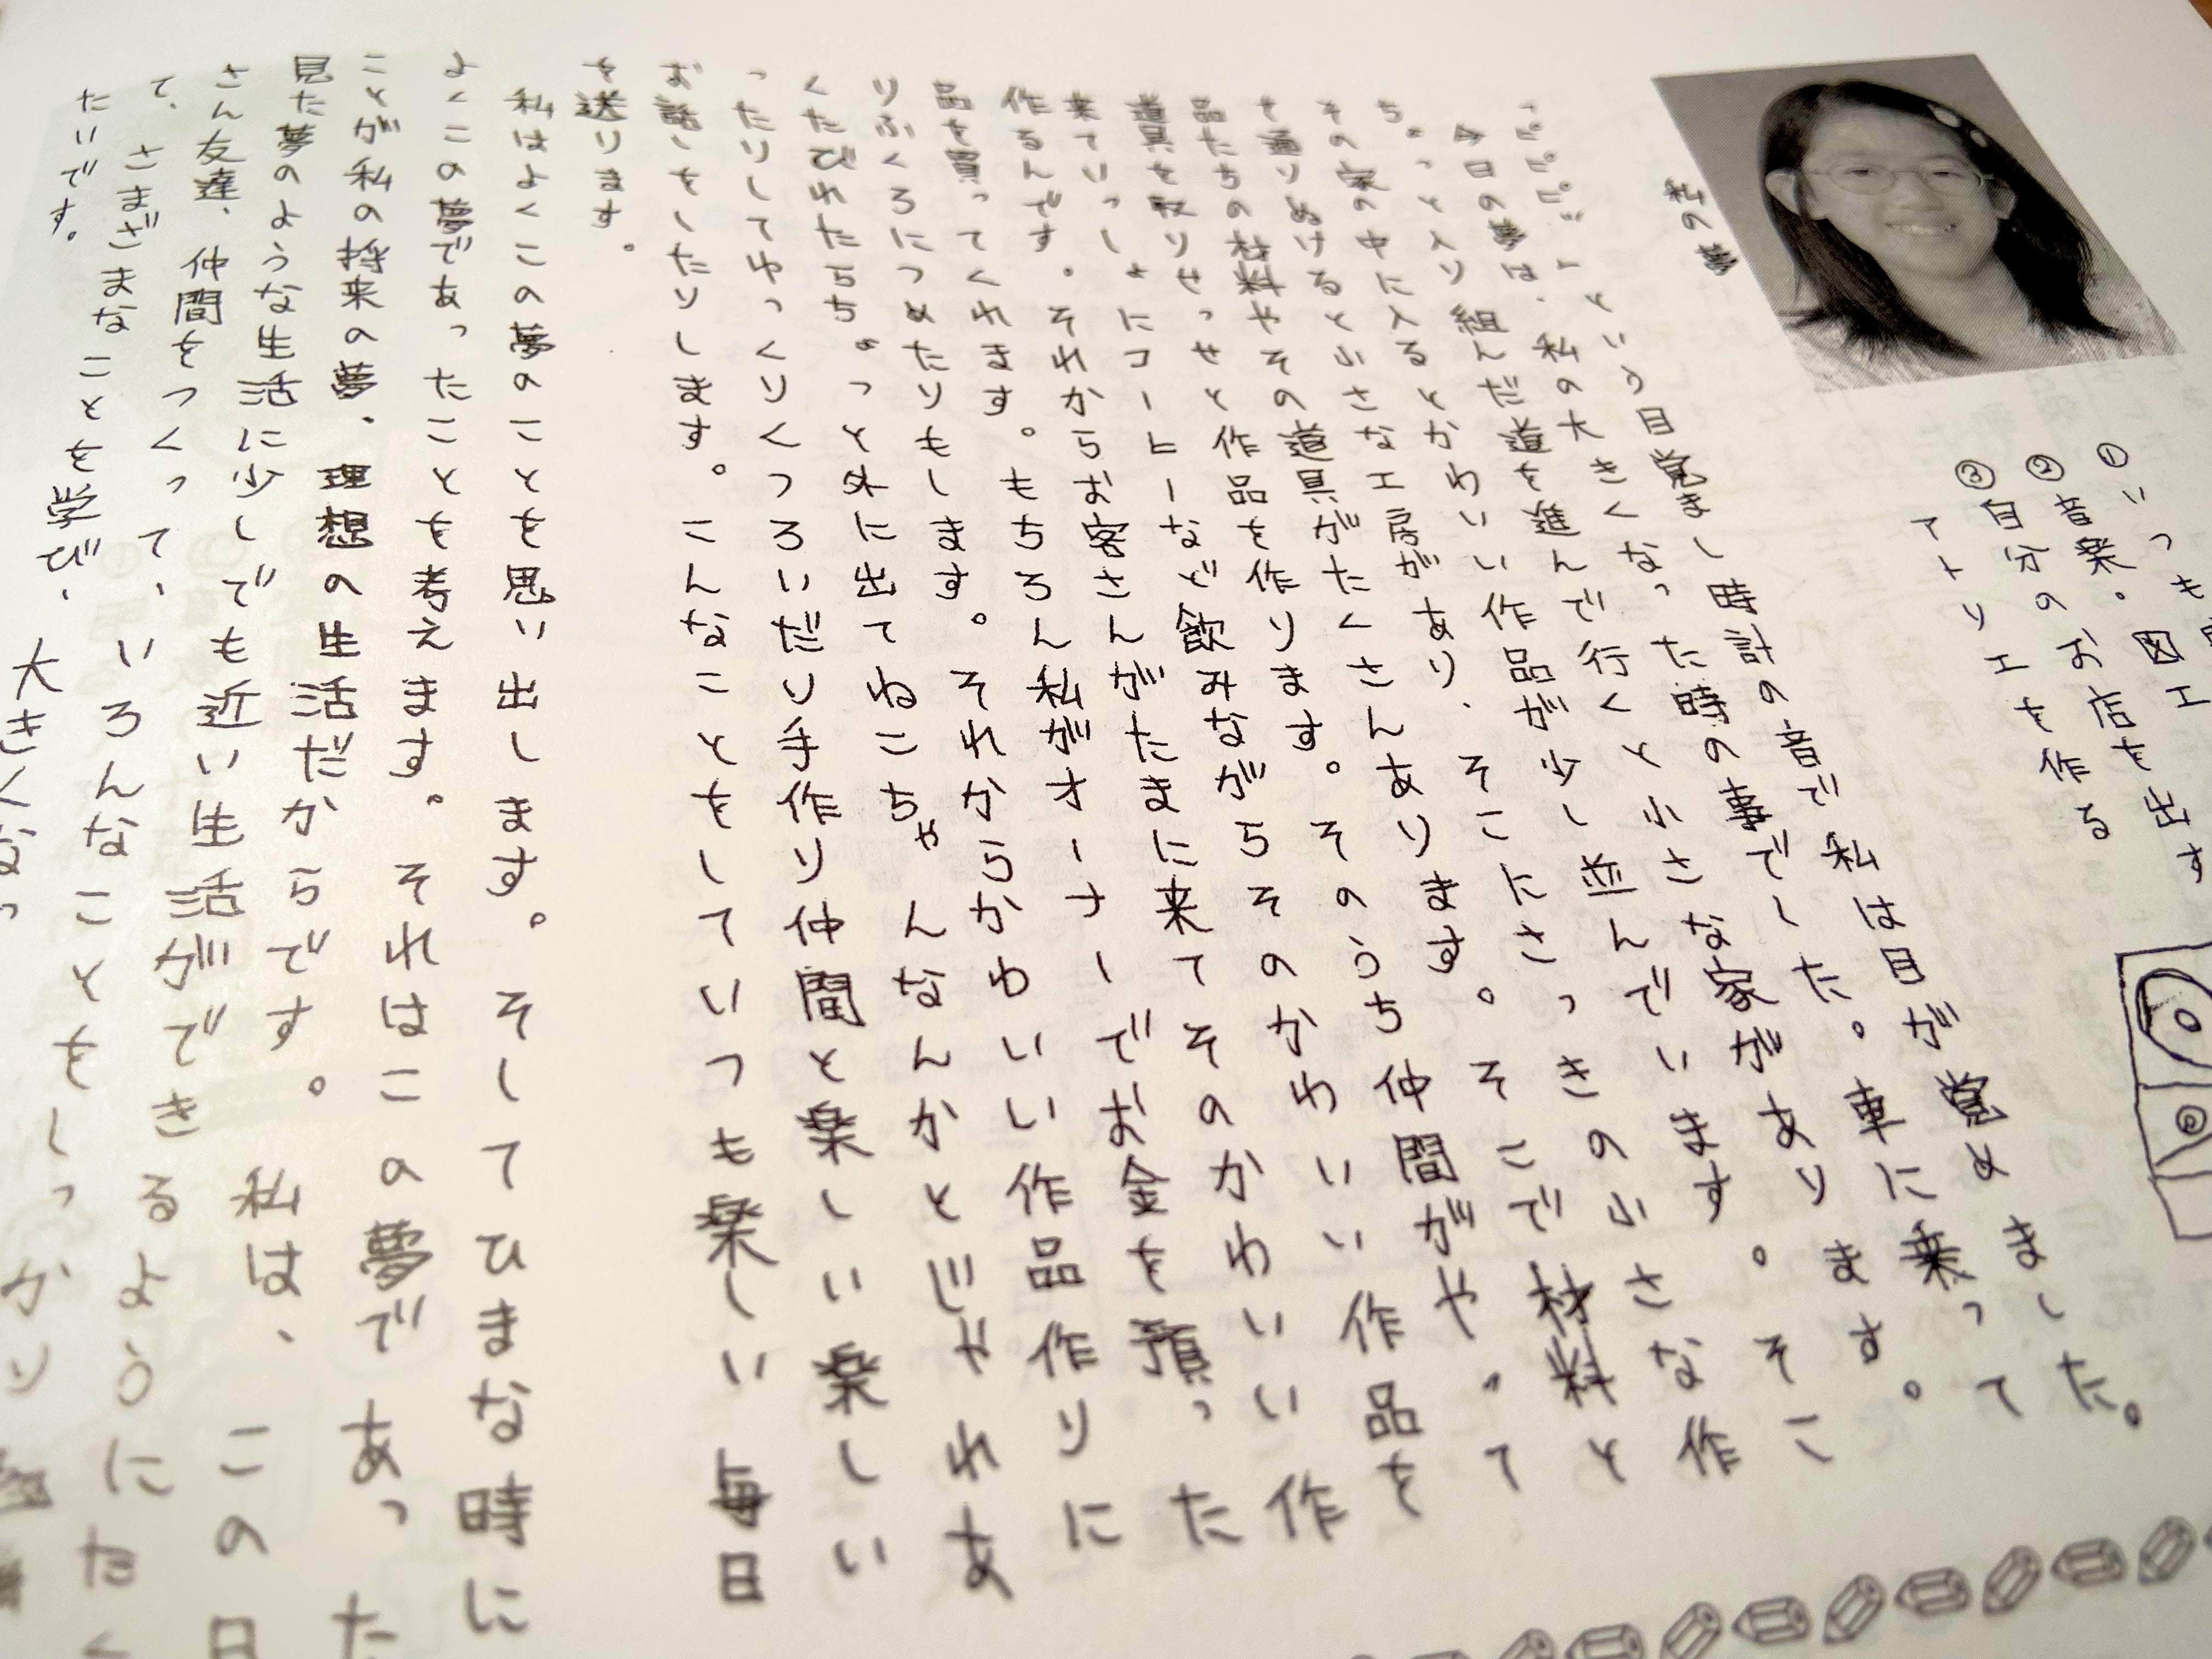 ①いつも
②音楽・図工
③自分のお店を出す
アトリエを作る
私の夢
「ピピピピッ」という目覚まし時計の音で私は目が覚めました。
今日の夢は、私の大きくなった時の事でした。車に乗って
ちょっと入り組んだ道を進んで行くと小さな家があります。
その家の中に入るとかわいい作品が少し並んでいます。そこ
を通りぬけると小さな工房があり、そこにさっきの小さな作
品たちの材料やその道具がたくさんあります。そこで材料と
道具を取りせっせと作品を作ります。そのうち仲間がやって
来ていっしょにコーヒーなど飲みながらそのかわいい作品を
作るんです。それからお客さんがたまに来てそのかわいい作
品を買ってくれます。もちろん私がオーナーでお金を預った
りふくろにつめたりもします。それからかわいい作品作りに
くたびれたらちょっと外に出てねこちゃんなんかとじゃれあ
ったりしてゆっくりくつろいだり手作り仲間と楽しい楽しい
お話しをしたりします。こんなことをしていつも楽しい毎日
を送ります。
私はよくこの夢のことを思い出します。そしてひまな時に
よくこの夢であったことを考えます。それはこの夢であった
ことが私の将来の夢、理想の生活だからです。私は、この日
見た夢のような生活に少しでも近い生活ができるようにたく
さん友達、仲間をつくって、いろんなことをしっかり
て、さまざまなことを学び、大きくなっ
たいです。